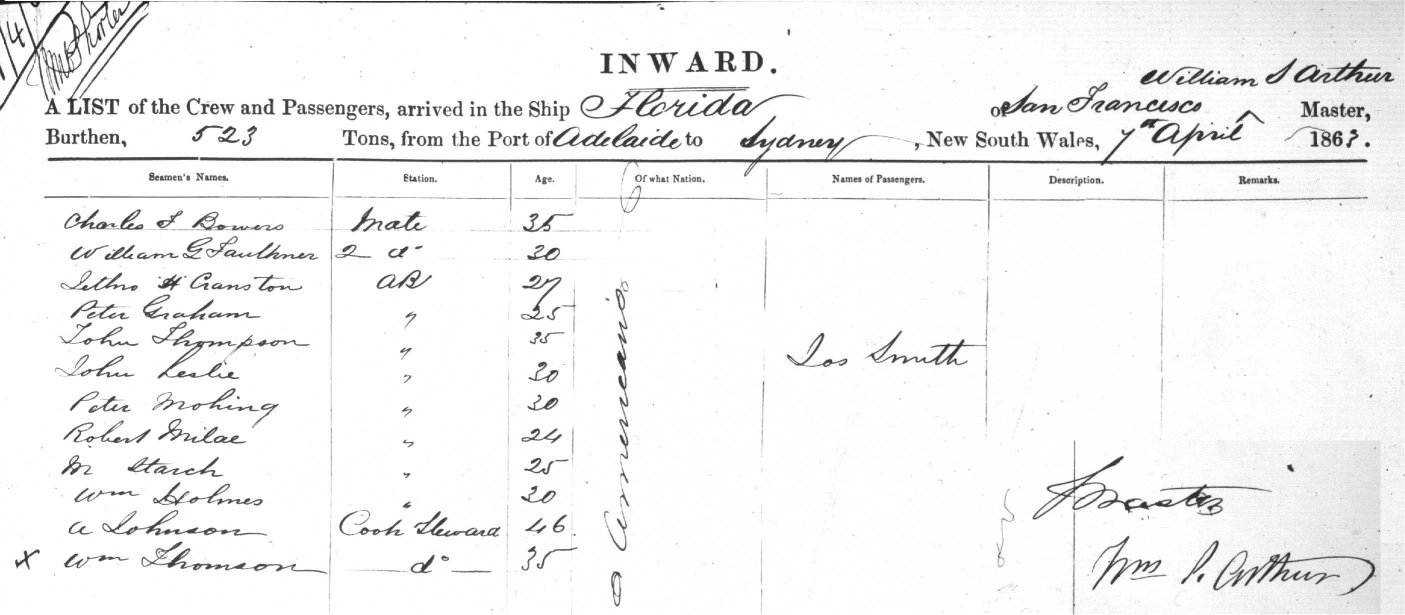 INWARD.
William S Arthur
A LIST of the Crew and Passengers, arrived in the Ship Florida of San Francisco Master,
Burthen, 523 Tons, from the Port of Adelaide to Sydney, New South Wales, 7th April 1863.
Seamen's Names. Station. Age. Of what Nation. Names of Passengers. Description. Remarks.
Charles F Bowers Mate 35
William G Faulkner 2 do 30
Jethro H Cranston AB 27
Peter Graham " 25
John Thompson " 35
Jos Smith
John Leslie " 30
Peter Mohing " 30
Robert Milae " 24
M Starch " 25
Wm Holmes " 30
A Johnson Cook Steward 46
x Wm Thomson do 35
Americans
Master
Wm S. Arthur